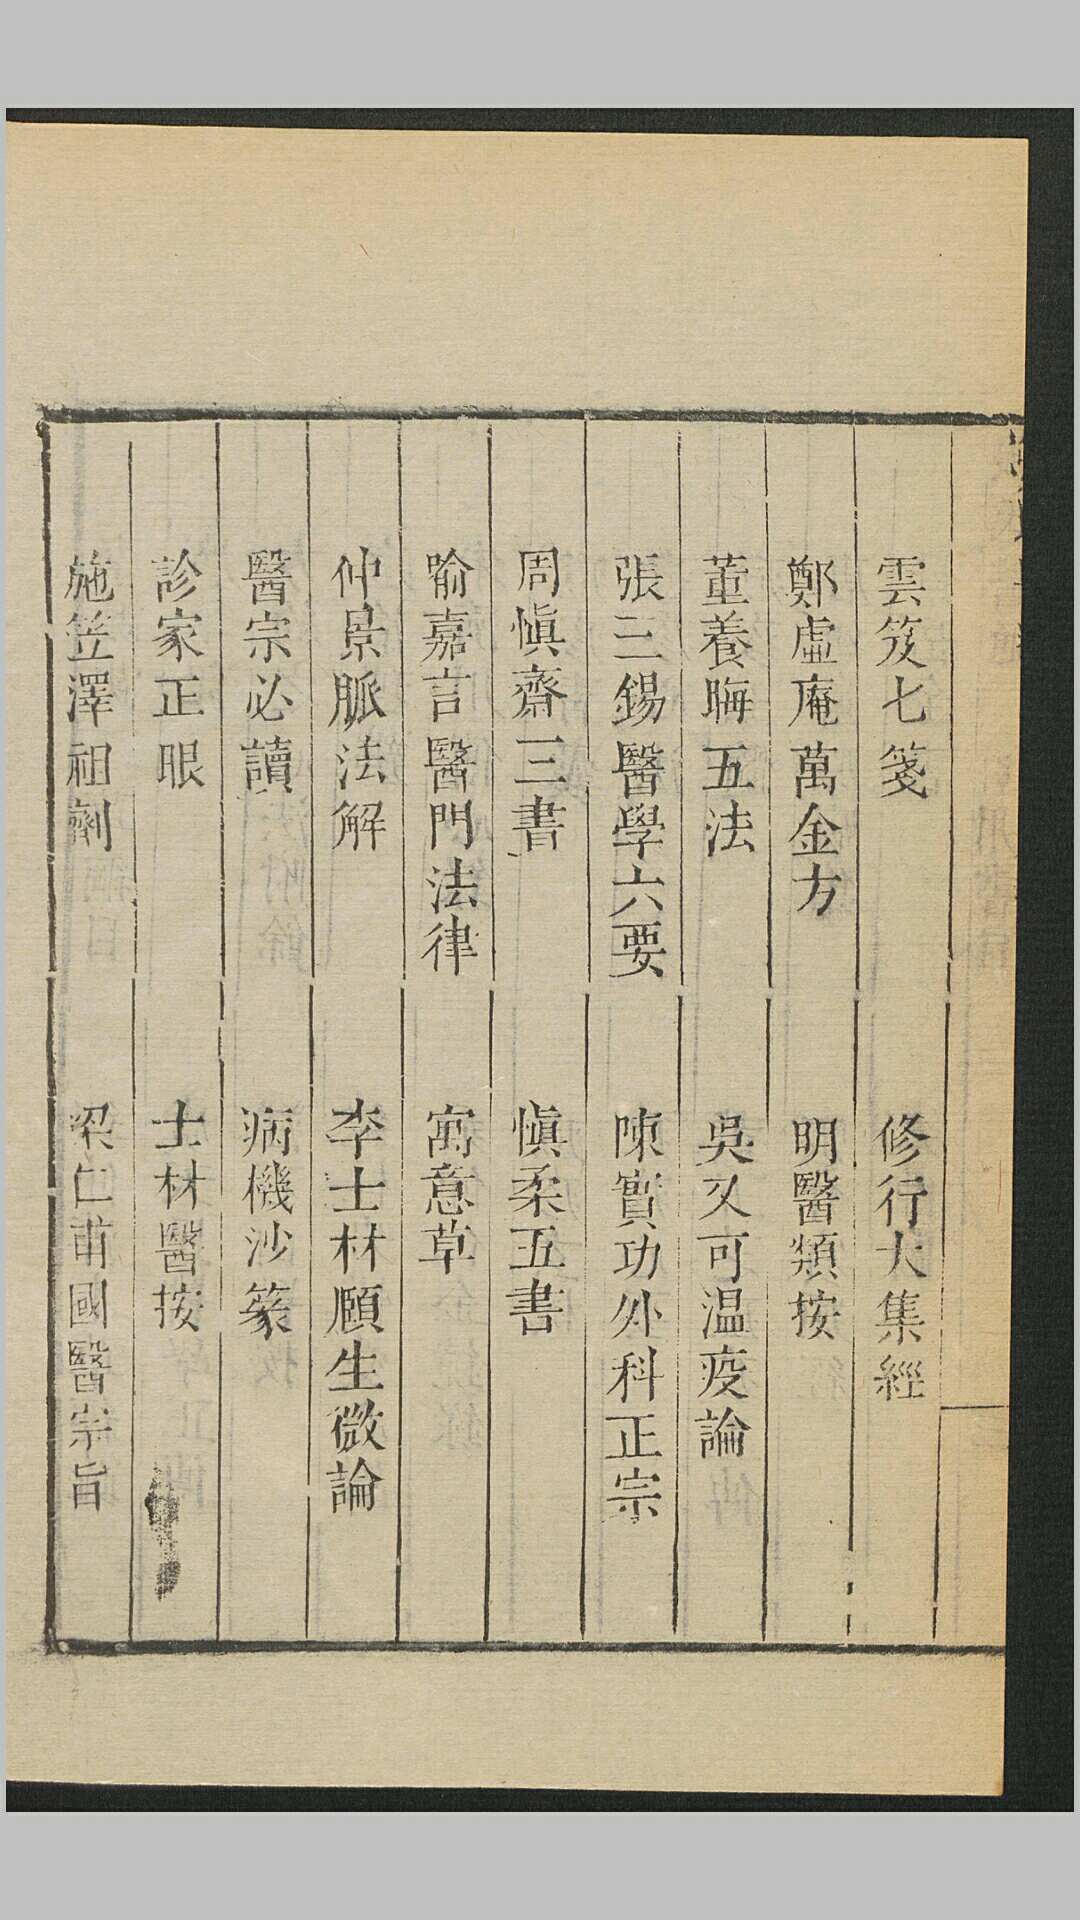 雲笈七箋　修行大集經
鄭虛庵萬金方　明醫類按
董養晦五法　吳又可温疫論
張三錫醫學六要　陳實功外科正宗
周愼齋三書　愼柔五書
喻嘉言醫門法律　寓意草
仲景脈法解　李士材頤生微論
醫宗必讀　病機沙篆
診家正眼　士材醫按
施笠澤祖劑　梁仁甫國醫宗旨